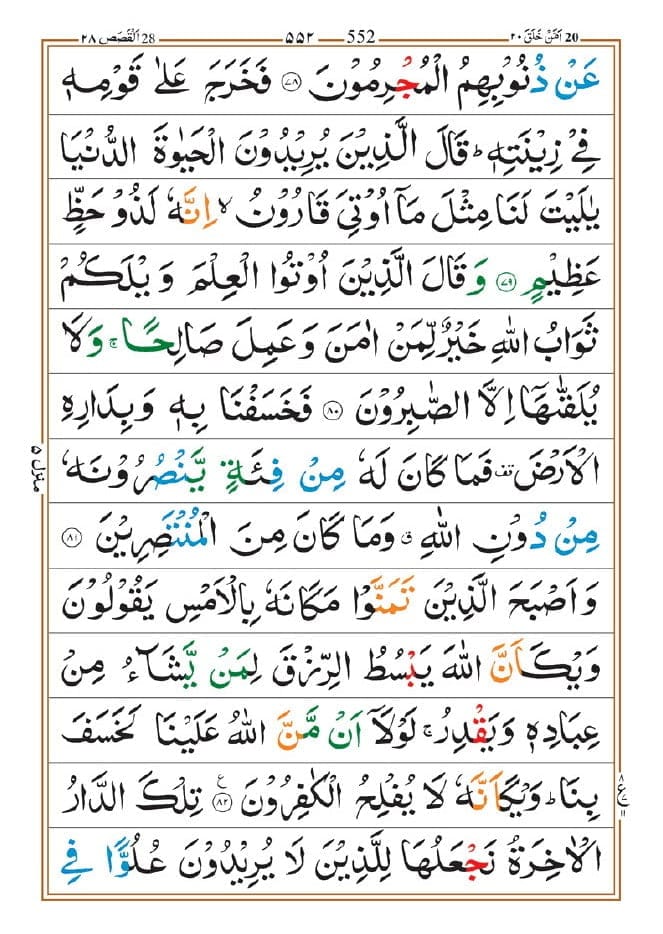 20 اَمَّنْ خَلَقَ ٢٠ 552 ٥٥٢ 28 اَلْقَصَص ٢٨
عَنْ ذُنُوْبِهِمُ الْمُجْرِمُوْنَ ۝٧٨ فَخَرَجَ عَلٰى قَوْمِهٖ
فِيْ زِيْنَتِهٖ ؕ قَالَ الَّذِيْنَ يُرِيْدُوْنَ الْحَيٰوةَ الدُّنْيَا
يٰلَيْتَ لَنَا مِثْلَ مَاۤ اُوْتِيَ قَارُوْنُ ۙ اِنَّهٗ لَذُوْ حَظٍّ
عَظِيْمٍ ۝٧٩ وَقَالَ الَّذِيْنَ اُوْتُوا الْعِلْمَ وَيْلَكُمْ
ثَوَابُ اللّٰهِ خَيْرٌ لِّمَنْ اٰمَنَ وَعَمِلَ صَالِحًا ۚ وَلَا
يُلَقّٰىهَاۤ اِلَّا الصّٰبِرُوْنَ ۝٨٠ فَخَسَفْنَا بِهٖ وَبِدَارِهِ
الْاَرْضَ قف فَمَا كَانَ لَهٗ مِنْ فِئَةٍ يَّنْصُرُوْنَهٗ
مِنْ دُوْنِ اللّٰهِ ۗ وَمَا كَانَ مِنَ الْمُنْتَصِرِيْنَ ۝٨١
وَاَصْبَحَ الَّذِيْنَ تَمَنَّوْا مَكَانَهٗ بِالْاَمْسِ يَقُوْلُوْنَ
وَيْكَاَنَّ اللّٰهَ يَبْسُطُ الرِّزْقَ لِمَنْ يَّشَآءُ مِنْ
عِبَادِهٖ وَيَقْدِرُ ۚ لَوْلَاۤ اَنْ مَّنَّ اللّٰهُ عَلَيْنَا لَخَسَفَ
بِنَا ؕ وَيْكَاَنَّهٗ لَا يُفْلِحُ الْكٰفِرُوْنَ ۝٨٢ ع تِلْكَ الدَّارُ
الْاٰخِرَةُ نَجْعَلُهَا لِلَّذِيْنَ لَا يُرِيْدُوْنَ عُلُوًّا فِي
منزل ٥
٨ ع ١١